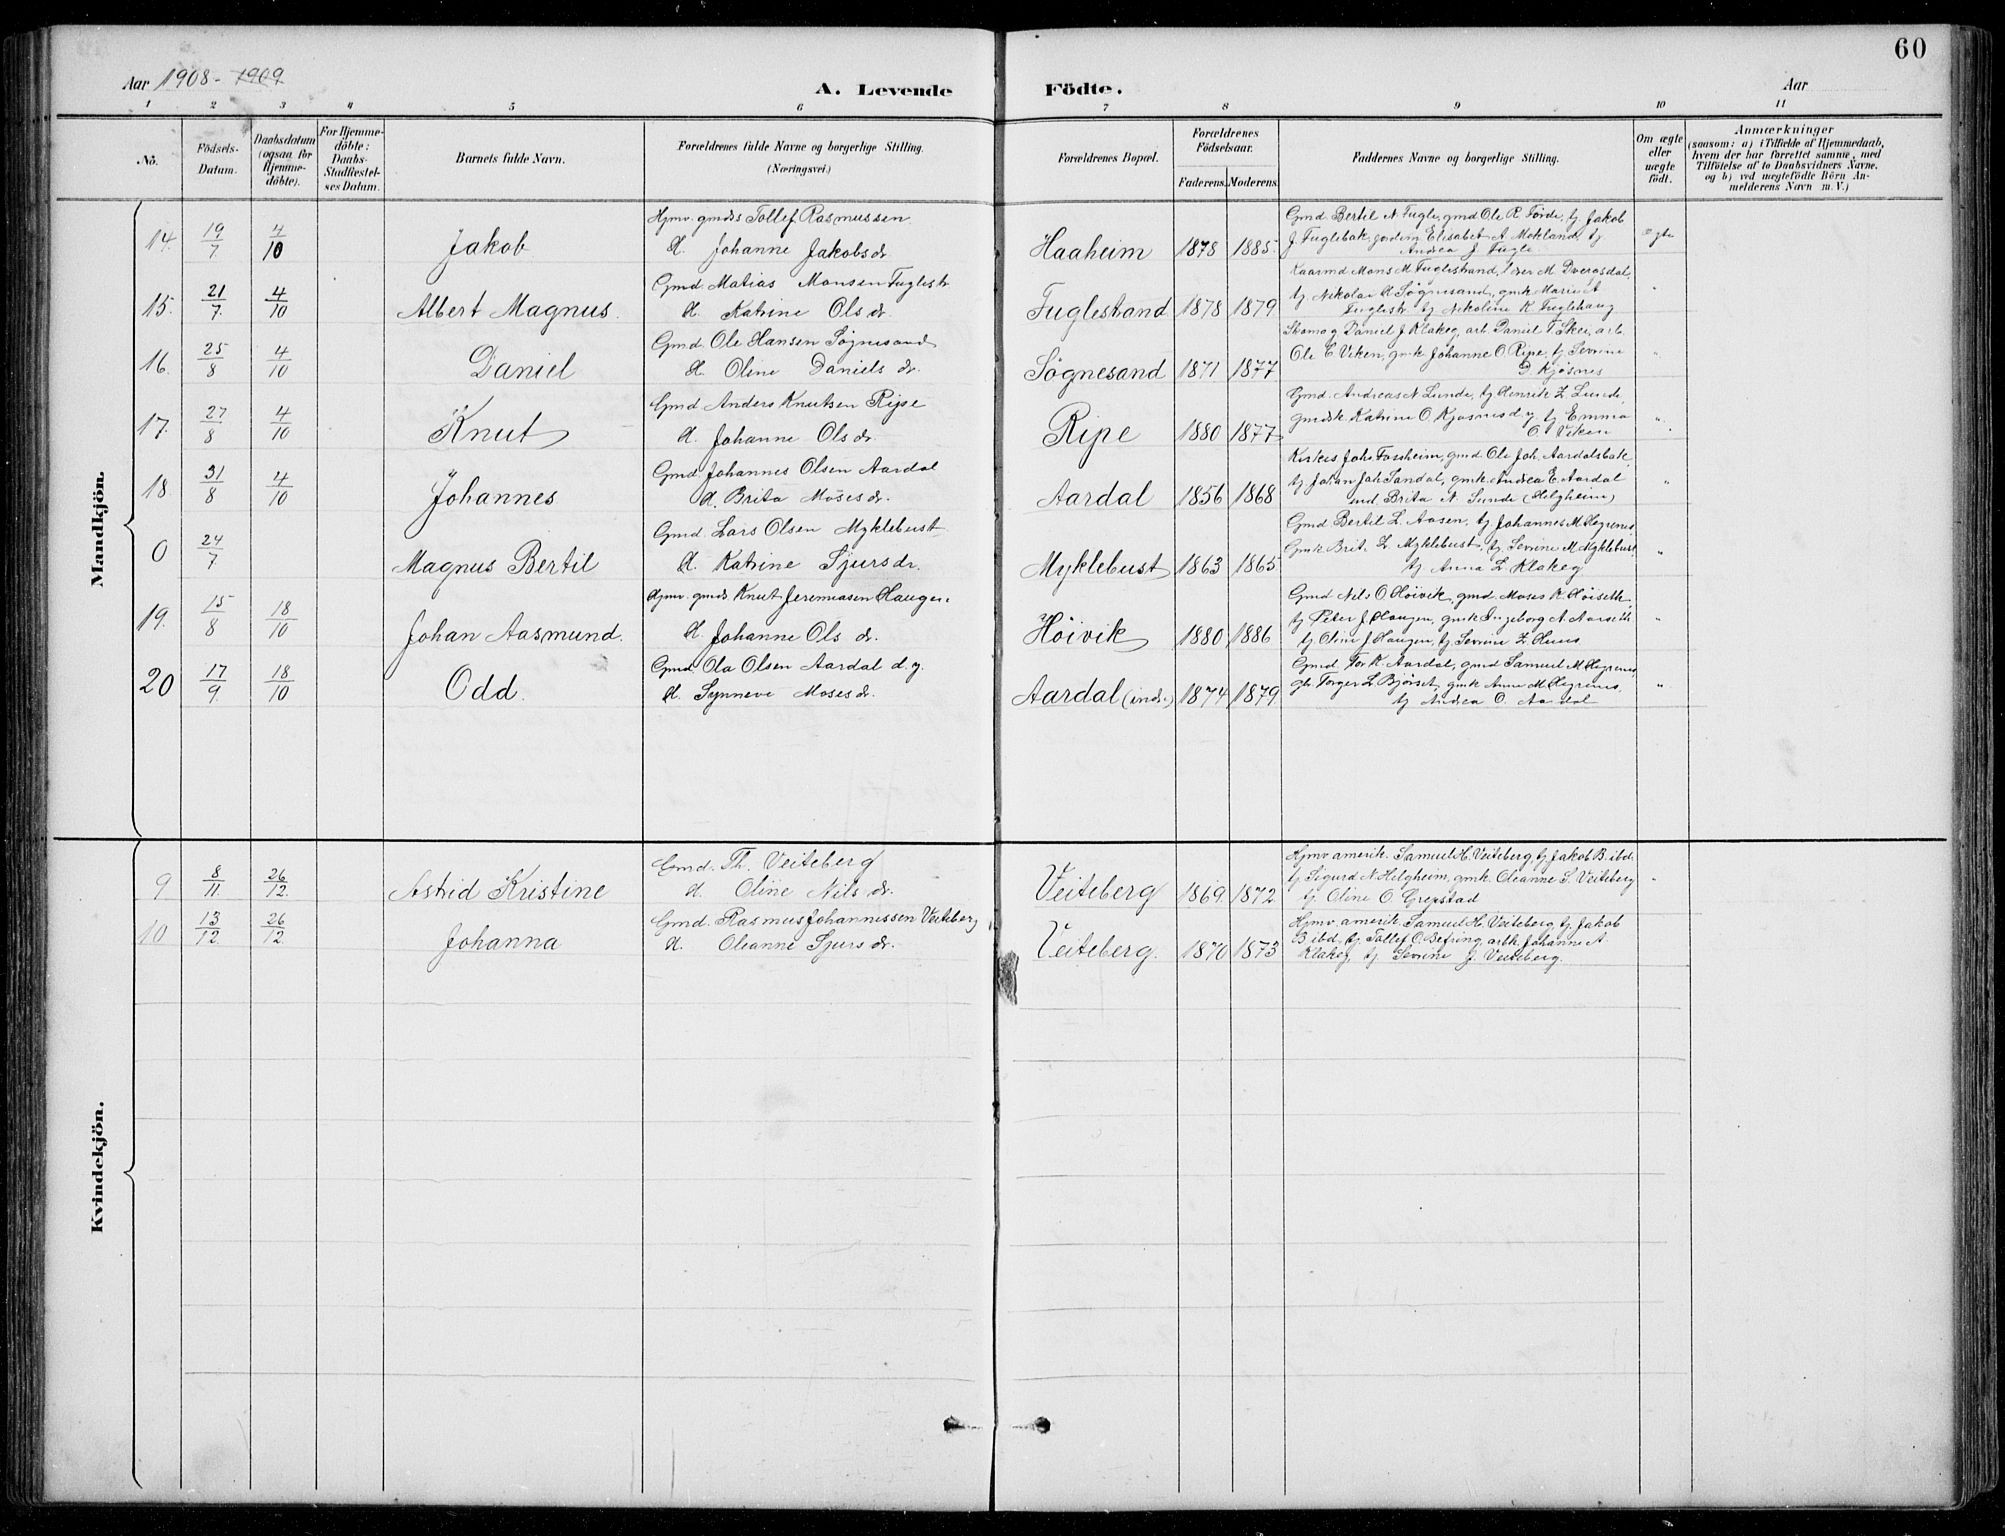 60
Aar 1908 - 1909
A. Levende Födte.
Aar
1 2 3 4 5 6 7 8 9 10 11
No. Födsels-Datum. Daabsdatum (ogsaa for Hjemme-döbte). For Hjemme-döbte: Daabs-Stadfæstel-ses Datum. Barnets fulde Navn. Forældrenes fulde Navne og borgerlige Stilling. (Næringsvei.) Forældrenes Bopæl. Forældrenes Födselsaar. Faderens. Moderens. Faddernes Navne og borgerlige Stilling. Om ægte eller uægte födt. Anmærkninger (saasom: a) i Tilfælde af Hjemmedaab, hvem der har forrettet samme, med Tilföielse af to Daabsvidners Navne, og b) ved uægtefödte Börn An-melderens Navn m. V.)
Mandkjön.
14. 19/7 4/10 Jakob Hjmv. gmds Tollef Rasmussen
H. Johanne Jakobsdr Haaheim 1878 1885. Gmd. Bertil N Fugle, gmd Ole R Førde, tj. Jakob
J Fuglebak, jordem Elisabet A. Mokland, tj.
Andrea J Fugle ægte
15. 21/7 4/10 Albert Magnus. Gmd Matias Monsen Fuglestr
H. Katrine Olsdr. Fuglestrand 1878 1879 Kaarmd Mons M Fuglestrand, M Dvergsdal,
tj Nikolai H Søgnesand, gmk Mari
Fuglestr. tj Nikoline K Fuglehaug "
16. 25/8 4/10 Daniel Gmd. Ole Hansen Søgnesand
H. Oline Daniels dr. Søgnesand 1871 1877 Skomag Daniel J Klakeg, arb. Daniel T Skei, arb.
Ole E Viken, gmk Johanne O. Ripe, tj Sevrine
D Kjøsnes "
17. 27/8 4/10 Knut Gmd Anders Knutsen Ripe
H. Johanne Olsdr. Ripe 1880 1877 Gmd. Andreas N Lunde, tj Henrik L Lunde,
gmdsk Katrine O. Kjøsnes d.y. tj Emma
O. Viken "
18. 31/8 4/10 Johannes Gmd. Johannes Olsen Aardal
H. Brita Mosesdr. Aardal 1856 1868 Kirkes Joh. Fossheim, gmd Ole Joh. Aardalsbak,
tj Johan Joh Sandal, gmk Andrea E. Aardal
ind Brita N. Lunde (Helgheim) "
0 24/7 Magnus Bertil Gmd. Lars Olsen Myklebust
H. Katrine Sjursdr. Myklebust 1863 1865 Gmd Bertil L. Aasen, tj Johannes M Hegrenes,
Gmk Brit. L Myklebust, tj. Sevrine M Myklebust
tj Anna L Klakeg "
19. 15/8 18/10 Johan Aasmund. Hjmv. gmds Knut Jeremiasen Haugen.
H. Johanne Ols dr. Høivik 1880 1886 Gmd Nils O Høivik, gmd Moses K Høiseth,
tj Peter J Haugen, gmk Ingeborg A Aarseth
tj Oline J Haugen, tj Sevrine L Huus "
20 17/9 18/10 Odd. Gmd. Ola Olsen Aardal d.y.
H. Synneve Mosesdr. Aardal (indr.) 1874 1879 Gmd Tor K. Aardal, gmd Samuel M Hegrenes,
gb. Torger L Bjørset, gmk Anne M Hegrenes,
tj Andrea O. Aardal "
Kvindekjön.
9 8/11. 26/12. Astrid Kristine Gmd. Th. Veiteberg
H. Oline Nils dr. Veiteberg 1869 1872 Hjmv amerik. Samuel H. Veiteberg, tj Jakob B. ibd.
tj Sigurd N Helgheim, gmk. Oleanne S. Veiteberg
tj. Oline O. Grepstad "
10 13/12. 26/12. Johanna Gmd. Rasmus Johannessen Veiteberg
H. Oleanne Sjursdr. Veiteberg. 1870 1873 Hjmv. amerik. Samuel H. Veiteberg, tj. Jakob
B ibd, tj Tollef O. Befring, arbk. Johanne A
Klakeg, tj Sevrine J. Veiteberg.